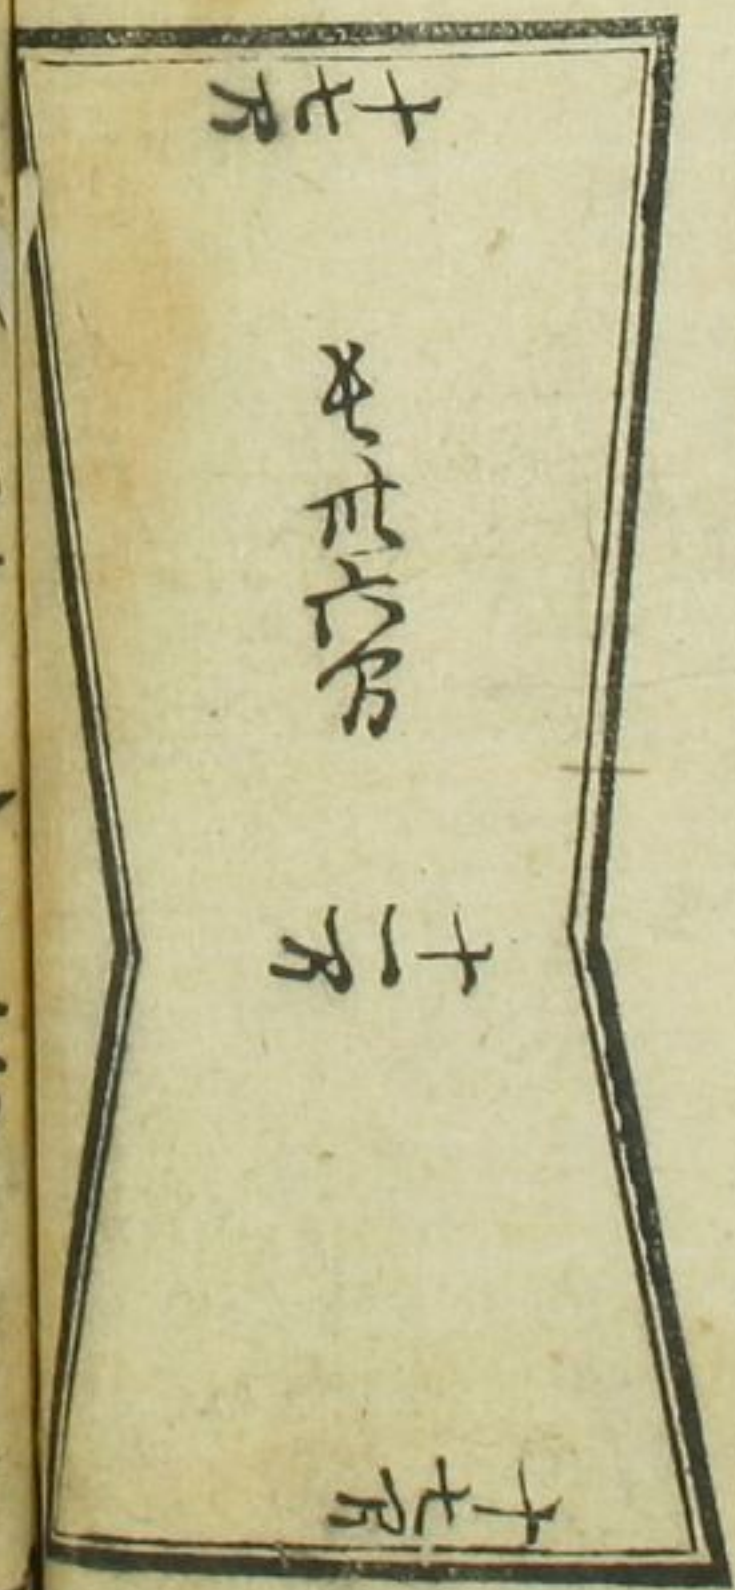 十七間
長卅六間
十一間
十七間